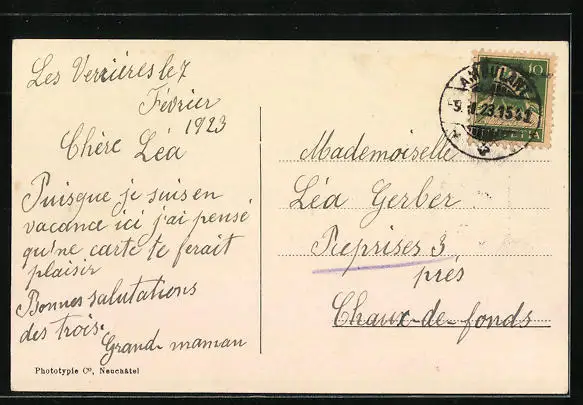 Les Verrières le 7
Février
1923
Chère Léa
Puisque je suis en
vacance ici j'ai pensé
qu'ne carte te ferait
plaisir
Bonnes salutations
des trois.
Grand-maman
Phototypie Co, Neuchâtel
10
AMBULANT
-9. II. 23-15
Mademoiselle
Léa Gerber
Reprises 3
près
Chaux-de-fonds